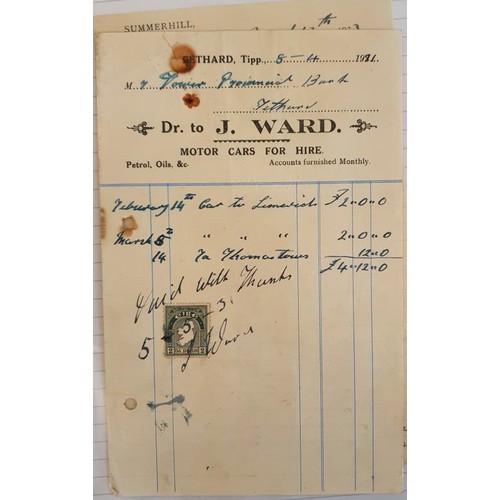 SUMMERHILL,
FETHARD, Tipp., 8-4 1931.
M r Power Provincial Bank
Fethard
Dr. to J. WARD.
MOTOR CARS FOR HIRE.
Petrol, Oils, &c. Accounts furnished Monthly.
February 14th Car to Limerick £2"0"0
March 5th " " " 2"0"0
14 To Thomastown 12"0
£4"12"0
Paid With Thanks
J Ward